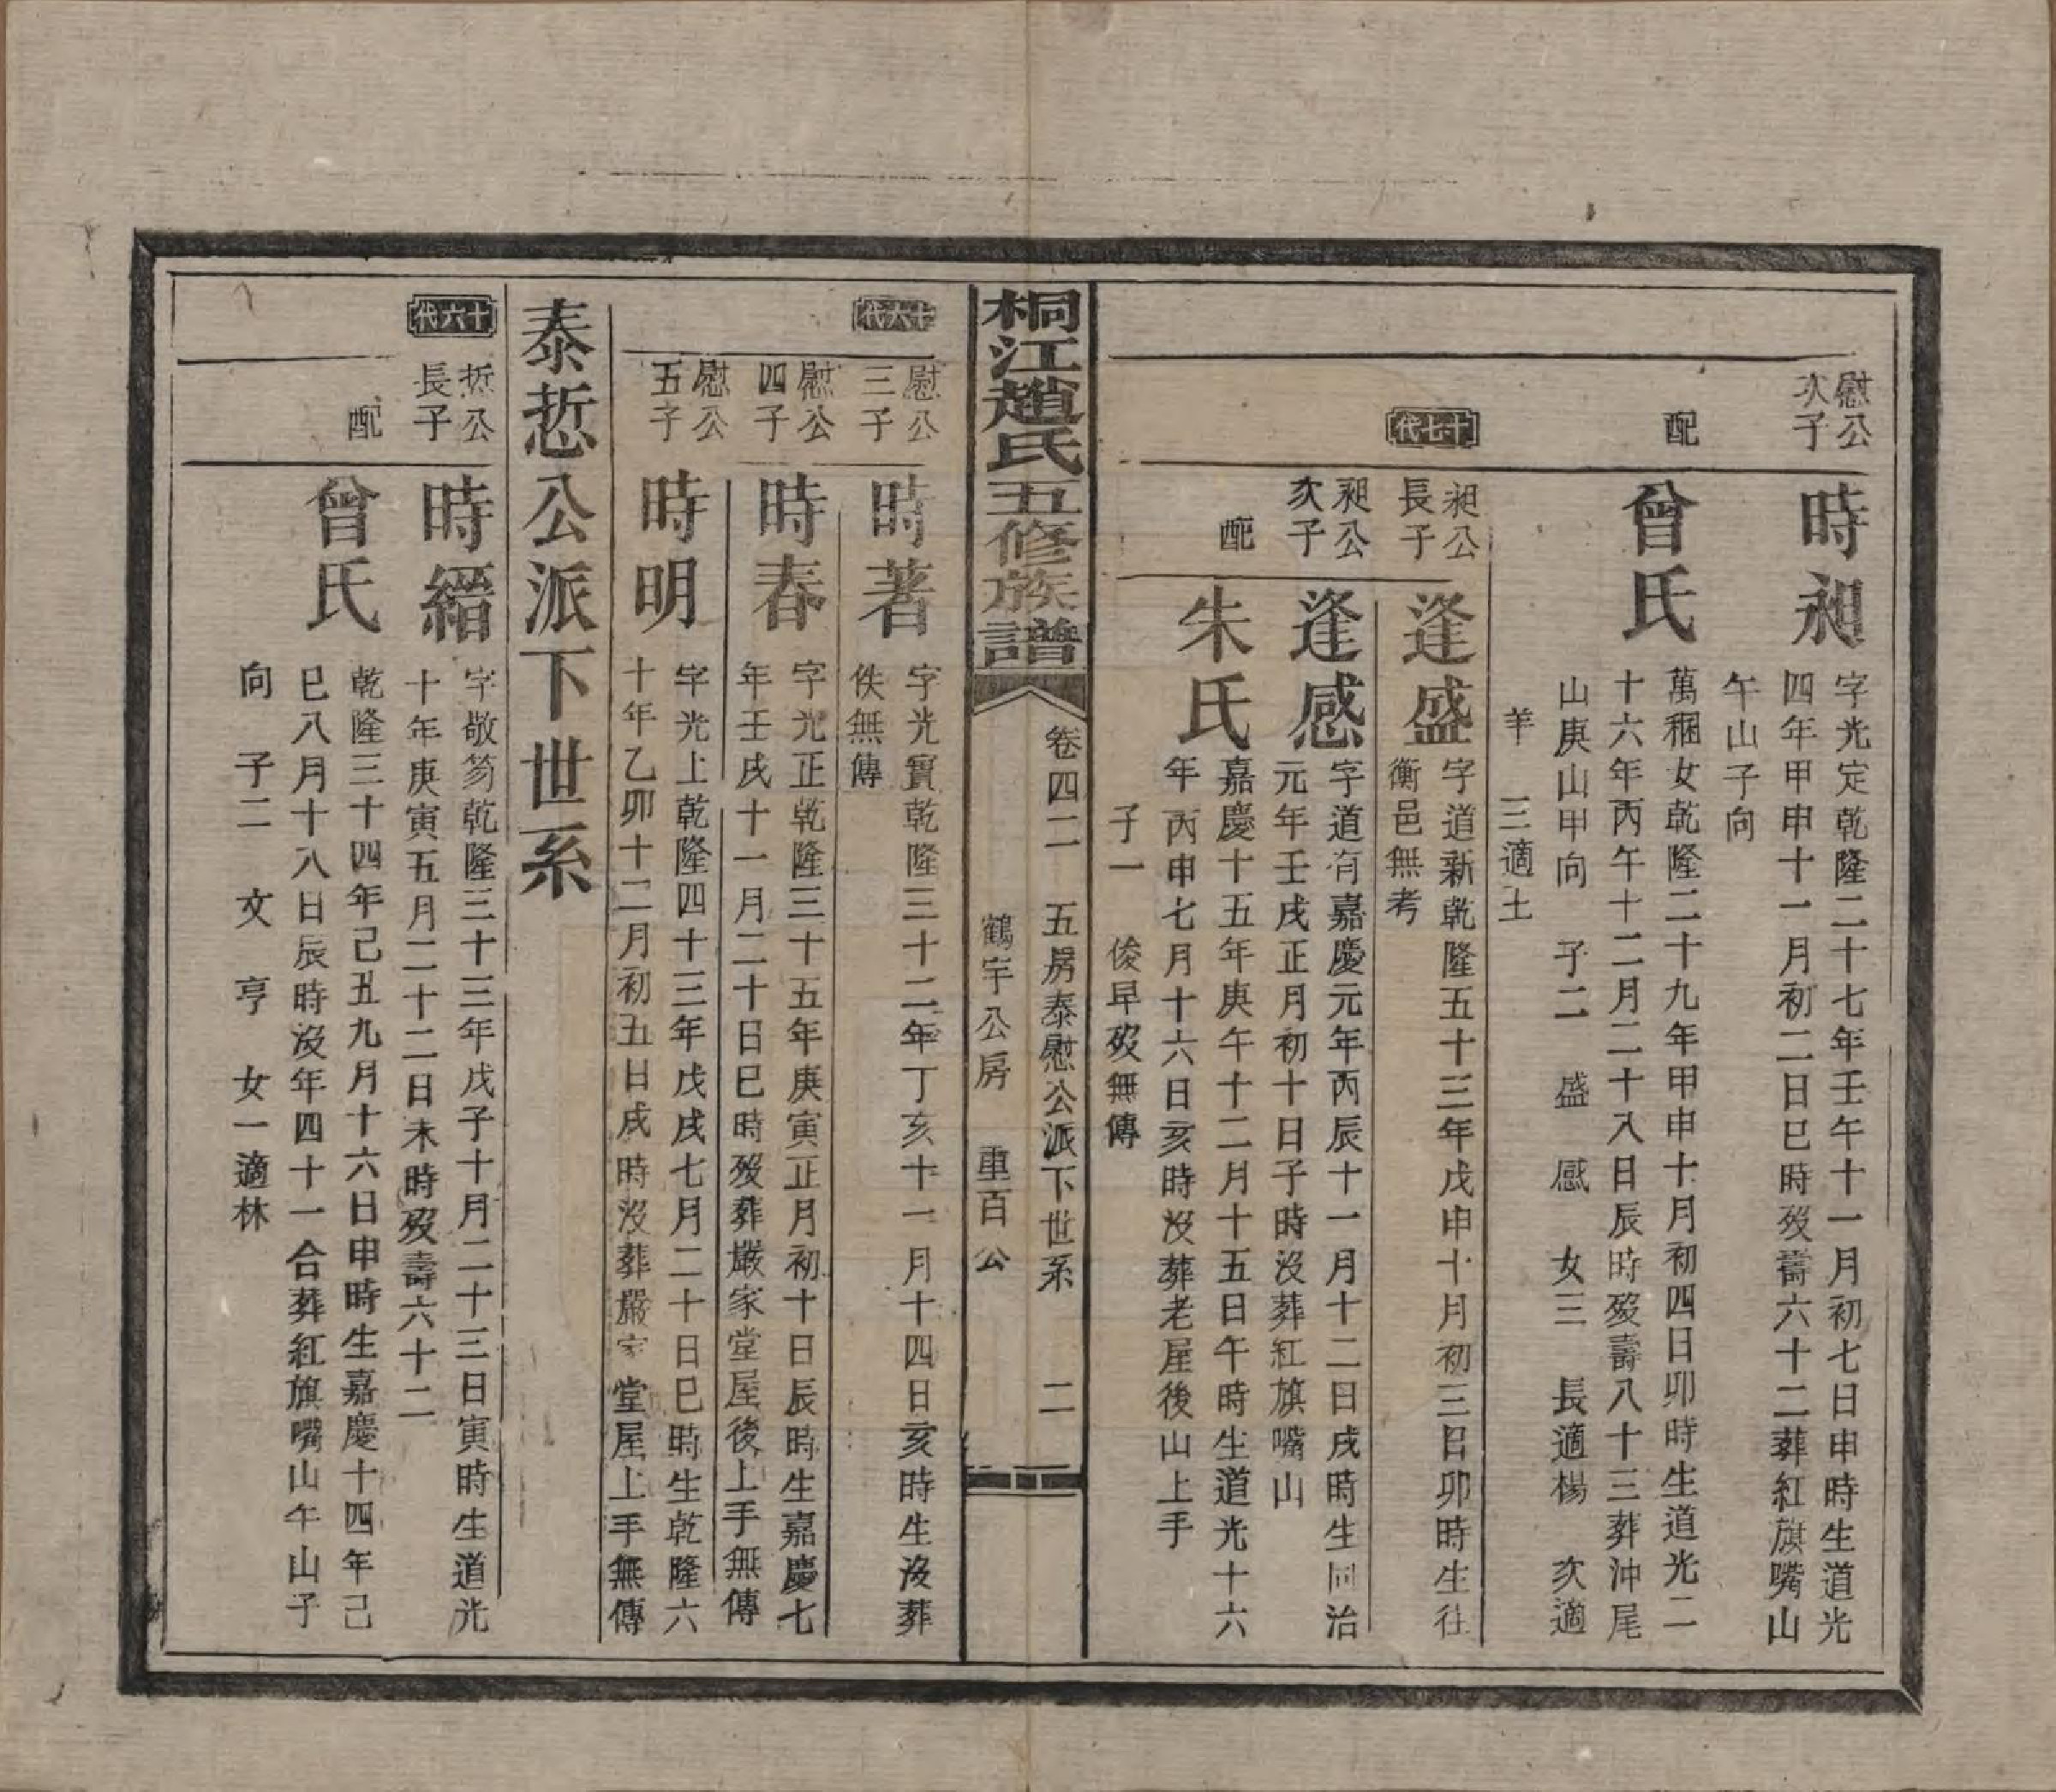 慰公
次子
時昶
字光定乾隆二十七年壬午十一月初七日申時生道光
四年甲申十一月初二日巳時歿壽六十二葬紅旗嘴山
午山子向
配
曾氏
萬稇女乾隆二十九年甲申十月初四日卯時生道光二
十六年丙午十二月二十八日辰時歿壽八十三葬沖尾
山庚山甲向 子二 盛 感 女三 長適楊 次適
羊 三適土
十七代
昶公
長子
逢盛
字道新乾隆五十三年戊申十月初三日卯時生往
衡邑無考
昶公
次子
逢感
字道有嘉慶元年丙辰十一月十二日戌時生同治
元年壬戌正月初十日子時沒葬紅旗嘴山
配
朱氏
嘉慶十五年庚午十二月十五日午時生道光十六
年丙申七月十六日亥時沒葬老屋後山上手
子一 俊早歿無傳
桐江趙氏五修族譜
卷四二 五房泰慰公派下世系 二
鶴宇公房 重百公
十六代
慰公
三子
時著
字光實乾隆三十二年丁亥十一月十四日亥時生沒葬
佚無傳
慰公
四子
時春
字光正乾隆三十五年庚寅正月初十日辰時生嘉慶七
年壬戌十一月二十日巳時歿葬嚴家堂屋後上手無傳
慰公
五子
時明
字光上乾隆四十三年戊戌七月二十日巳時生乾隆六
十年乙卯十二月初五日戌時沒葬嚴家堂屋上手無傳
泰悊公派下世系
十六代
悊公
長子
時縉
字敬笏乾隆三十三年戊子十月二十三日寅時生道光
十年庚寅五月二十二日未時歿壽六十二
配
曾氏
乾隆三十四年己丑九月十六日申時生嘉慶十四年己
巳八月十八日辰時沒年四十一合葬紅旗嘴山午山子
向 子二 文 亨 女一適林